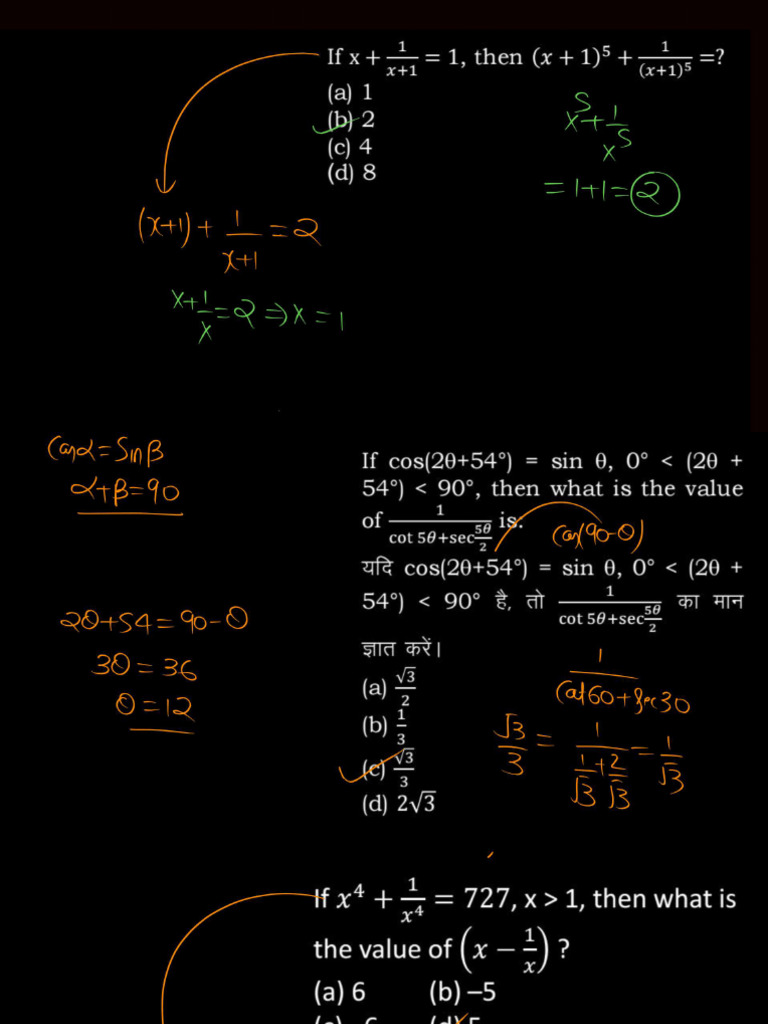 If x + 1/(x+1) = 1, then (x + 1)⁵ + 1/(x+1)⁵ =?
(a) 1
(b) 2
(c) 4
(d) 8
x⁵ + 1/x⁵
= 1+1 = 2
(x+1) + 1/(x+1) = 2
x + 1/x = 2 ⇒ x = 1
Cosα = Sinβ
α+β = 90
2θ+54 = 90-θ
3θ = 36
θ = 12
If cos(2θ+54°) = sin θ, 0° < (2θ +
54°) < 90°, then what is the value
of 1/(cot 5θ+sec 5θ/2) is:
Cos(90-θ)
यदि cos(2θ+54°) = sin θ, 0° < (2θ +
54°) < 90° है, तो 1/(cot 5θ+sec 5θ/2) का मान
ज्ञात करें।
(a) √3/2
(b) 1/3
(c) √3/3
(d) 2√3
1/(Cot60+Sec30)
√3/3 = 1/(1/√3 + 2/√3) = 1/√3
If x⁴ + 1/x⁴ = 727, x > 1, then what is
the value of (x − 1/x) ?
(a) 6 (b) –5